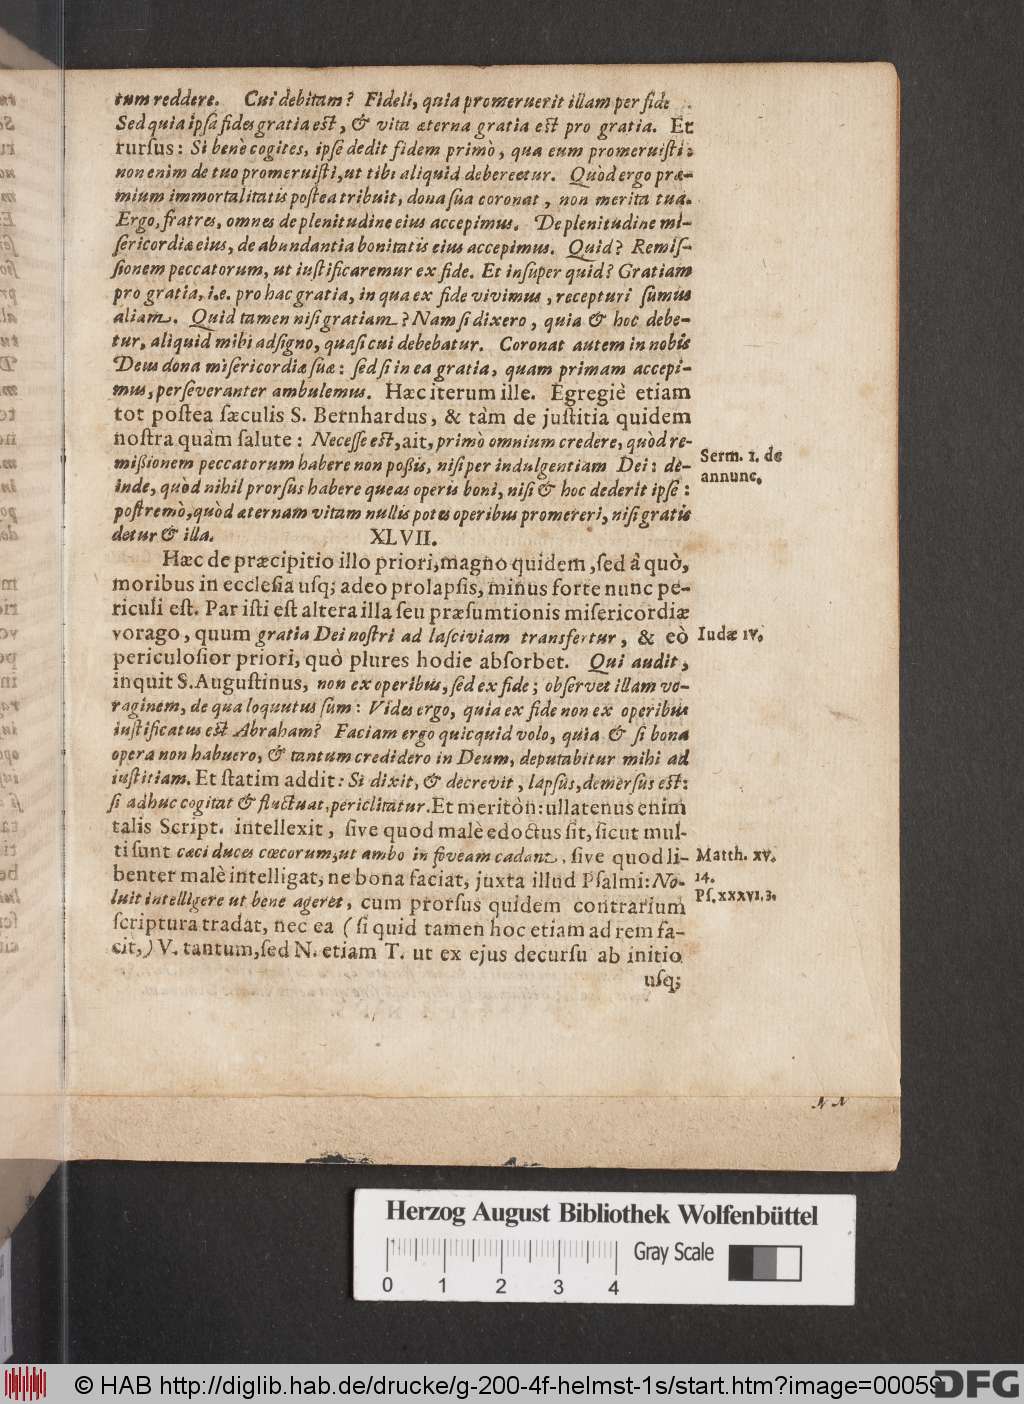 tum reddere. Cui debitam? Fideli, quia promeruerit illam per fidē
Sed quia ipſa fides gratia eſt, & vita æterna gratia eſt pro gratia. Et
rurſus: Si benè cogites, ipſe dedit fidem primò, qua eum promeruiſti:
non enim de tuo promeruiſti, ut tibi aliquid debereetur. Quòd ergo præ-
mium immortalitatis poſtea tribuit, dona ſua coronat, non merita tua.
Ergo, fratres, omnes de plenitudine eius accepimus. De plenitudine mi-
ſericordiæ eius, de abundantia bonitatis eius accepimus. Quid? Remiſ-
ſionem peccatorum, ut iuſtificaremur ex fide. Et inſuper quid? Gratiam
pro gratia, i.e. pro hac gratia, in qua ex fide vivimus, recepturi ſumus
aliam. Quid tamen niſi gratiam? Nam ſi dixero, quia & hoc debe-
tur, aliquid mihi adſigno, quaſi cui debebatur. Coronat autem in nobis
Deus dona miſericordiæ ſuæ: ſed ſi in ea gratia, quam primam accepi-
mus, perſeveranter ambulemus. Hæc iterum ille. Egregiè etiam
tot poſtea ſæculis S. Bernhardus, & tàm de juſtitia quidem
noſtra quàm ſalute: Neceſſe eſt, ait, primò omnium credere, quòd re-
mißionem peccatorum habere non poßis, niſi per indulgentiam Dei: de-
inde, quòd nihil prorſus habere queas operis boni, niſi & hoc dederit ipſe:
poſtremò, quòd æternam vitam nullis potes operibus promereri, niſi gratis
detur & illa. XLVII.
Serm. 1. de
annunc.
Hæc de præcipitio illo priori, magno quidem, ſed à quò,
moribus in eccleſia uſq; adeo prolapſis, minus forte nunc pe-
riculi eſt. Par iſti eſt altera illa ſeu præſumtionis miſericordiæ
vorago, quum gratia Dei noſtri ad laſciviam transfertur, & eò
Iudæ IV.
periculoſior priori, quò plures hodie abſorbet. Qui audit,
inquit S. Auguſtinus, non ex operibus, ſed ex fide; obſervet illam vo-
raginem, de qua loquutus ſum: Vides ergo, quia ex fide non ex operibus
iuſtificatus eſt Abraham? Faciam ergo quicquid volo, quia & ſi bona
opera non habuero, & tantum credidero in Deum, deputabitur mihi ad
iuſtitiam. Et ſtatim addit: Si dixit, & decrevit, lapſus, demerſus eſt:
ſi adhuc cogitat & fluctuat, periclitatur. Et meritò n: ullatenus enim
talis Script. intellexit, ſive quod malè edoctus ſit, ſicut mul-
ti ſunt cæci duces cœcorum, ut ambo in foveam cadant, ſive quod li-
Matth. XV.
14.
benter malè intelligat, ne bona faciat, juxta illud Pſalmi: No-
luit intelligere ut bene ageret, cum prorſus quidem contrarium
Pſ. XXXVI. 3.
ſcriptura tradat, nec ea (ſi quid tamen hoc etiam ad rem fa-
cit,) V. tantum, ſed N. etiam T. ut ex ejus decurſu ab initio
uſq;
Herzog August Bibliothek Wolfenbüttel
Gray Scale
0 1 2 3 4
© HAB http://diglib.hab.de/drucke/g-200-4f-helmst-1s/start.htm?image=00059
DFG